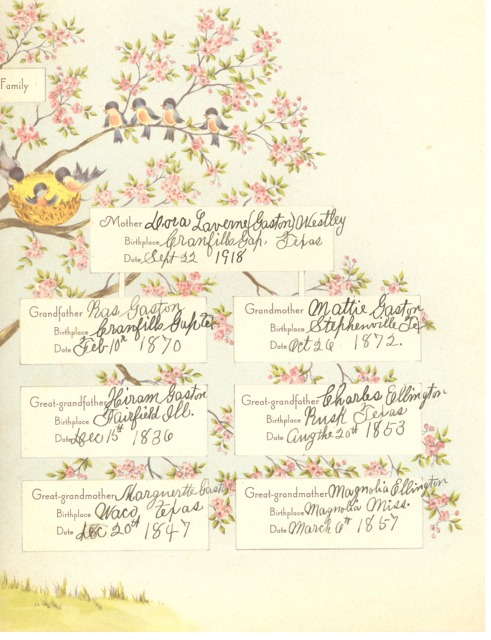 Family
Mother Dora Laverne (Gaston) Westley
Birthplace Cranfills Gap, Texas
Date Sept 22 1918
Grandfather Ras Gaston
Birthplace Cranfills Gap Tex
Date Feb 10th 1870
Grandmother Mattie Gaston
Birthplace Stephenville Te
Date Oct 26 1872.
Great-grandfather Hiram Gaston
Birthplace Fairfield Ill.
Date Dec 15th 1836
Great-grandfather Charles Ellington
Birthplace Rusk Texas
Date 20th 1853
Great-grandmother Marguertte Gast
Birthplace Waco, Texas
Date Dec 20th 1847
Great-grandmother Magnolia Ellington
Birthplace Magnolia Miss.
Date March 6th 1857